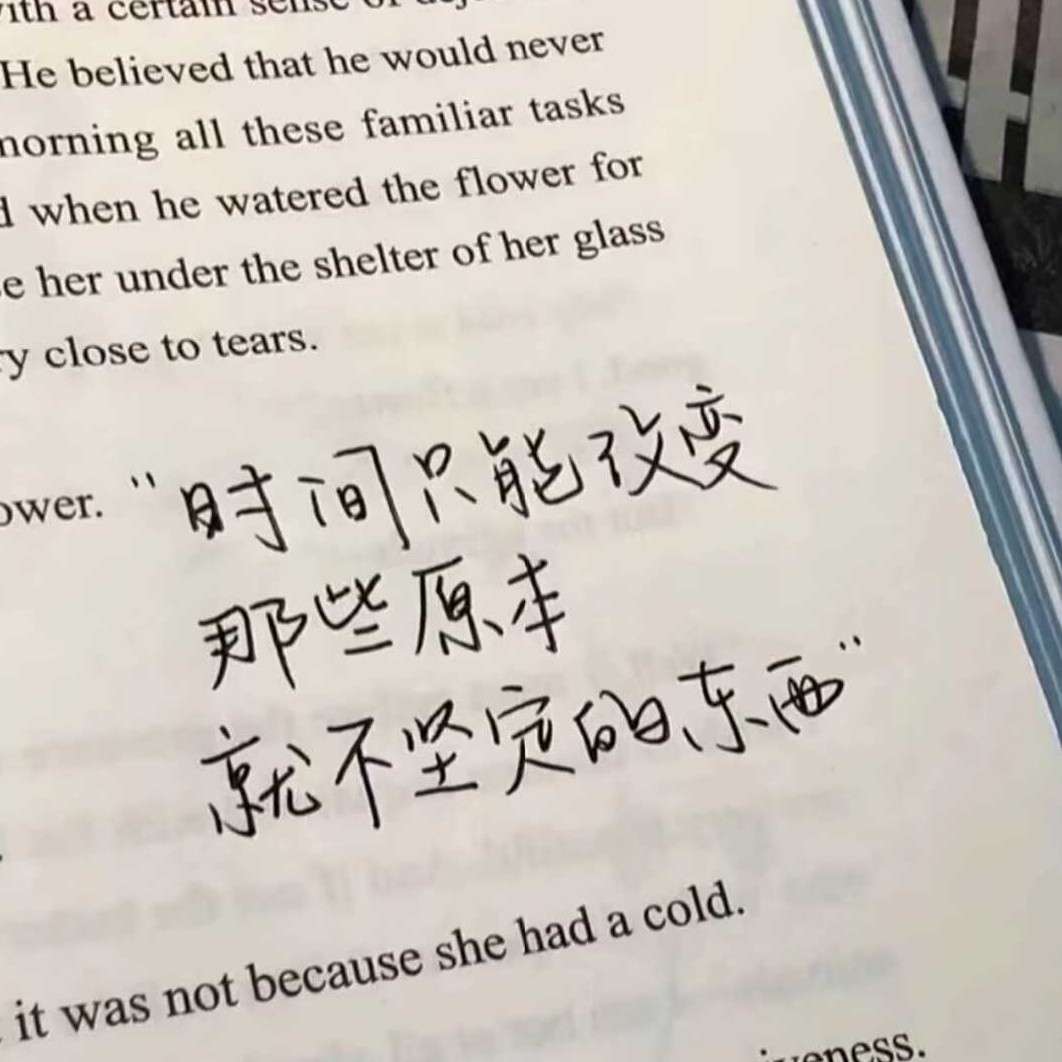 with a certain sense of
He believed that he would never
morning all these familiar tasks
when he watered the flower for
her under the shelter of her glass
close to tears.
"时间只能改变
那些原本
就不坚定的东西"
it was not because she had a cold.